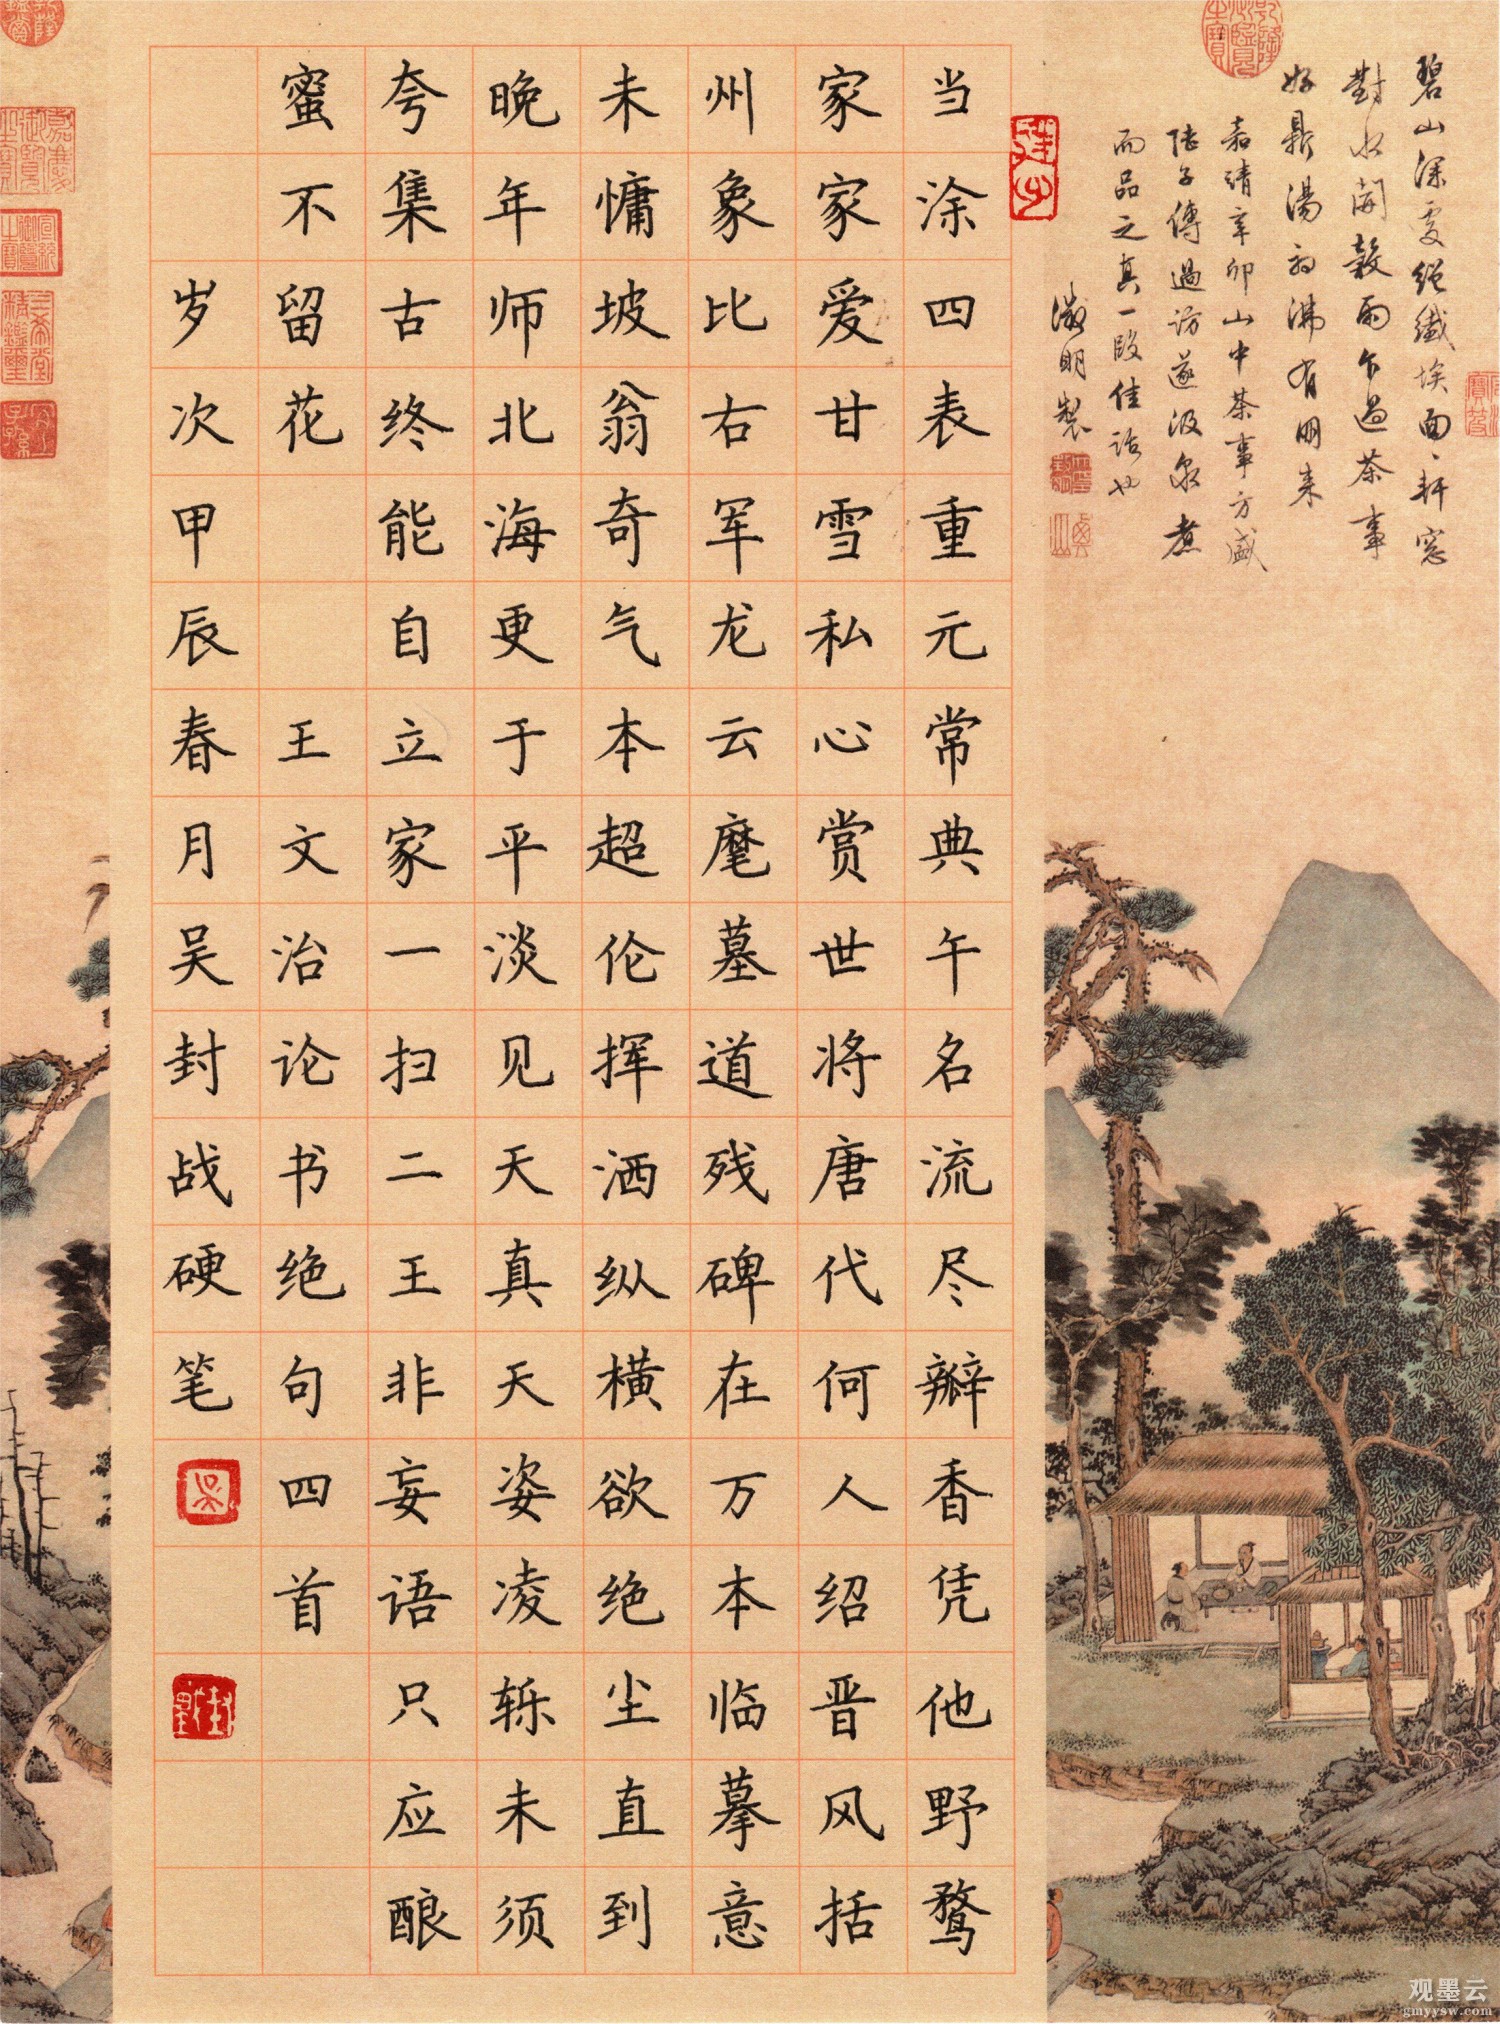 碧山深處絕纖埃面、軒窓
對水開穀雨乍過茶事
好鼎湯初沸有朋來
嘉靖辛卯山中茶事方盛
陸子傳過訪遂汲泉煮
而品之真一段佳話也
徵明製
当涂四表重元常典午名流尽瓣香凭他野鹜
家家爱甘雪私心赏世将唐代何人绍晋风括
州象比右军龙云麾墓道残碑在万本临摹意
未慵坡翁奇气本超伦挥洒纵横欲绝尘直到
晚年师北海更于平淡见天真天姿凌轹未须
夸集古终能自立家一扫二王非妄语只应酿
蜜不留花 王文治论书绝句四首
岁次甲辰春月吴封战硬笔
吴
嘉慶御覽之寶
宣統御覽之寶
三希堂精鑑璽
宜子孫
观墨云
gmyysw.com